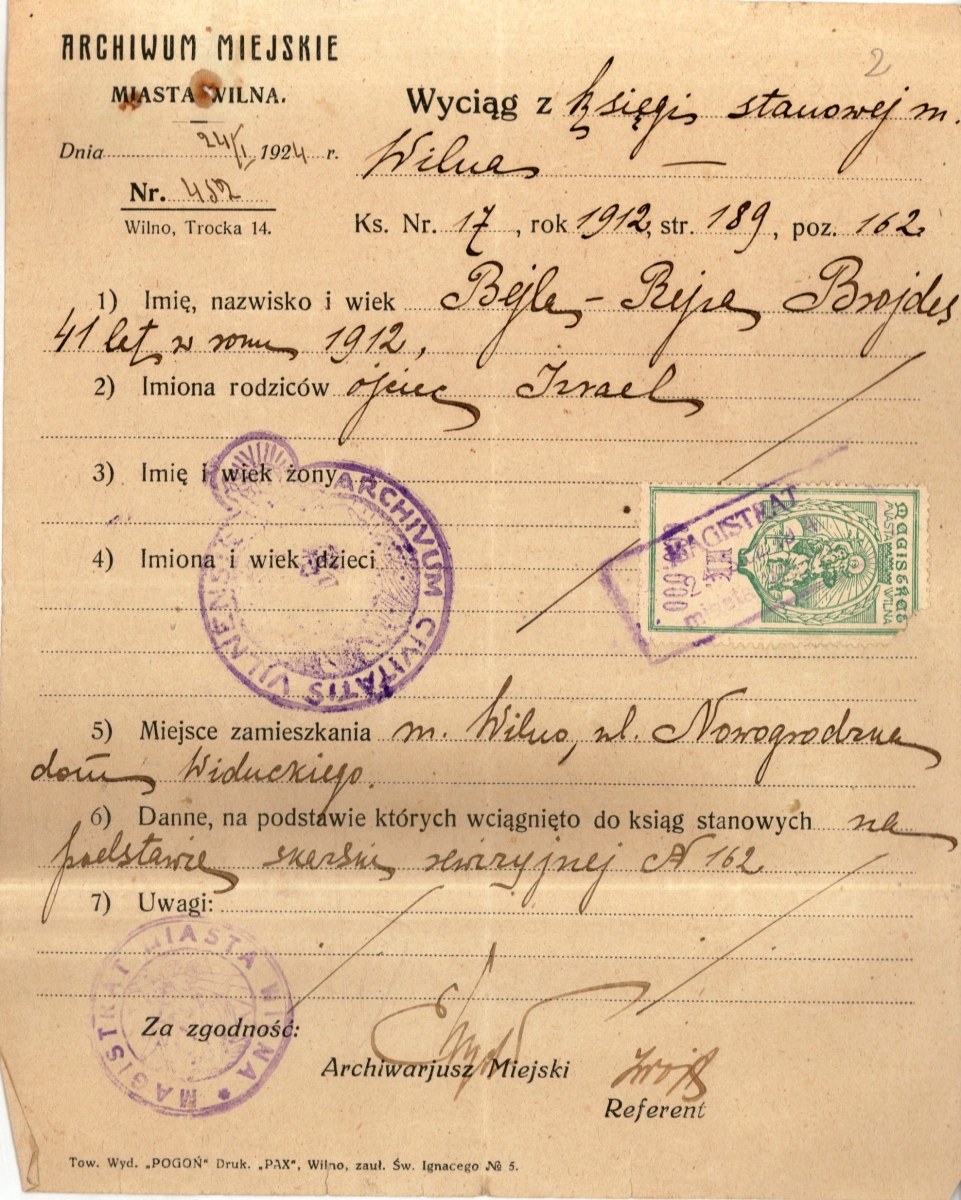 2
ARCHIWUM MIEJSKIE
MIASTA WILNA.
Dnia 24/I 1924 r.
Nr. 482
Wilno, Trocka 14.
Wyciąg z księgi stanowej m.
Wilna —
Ks. Nr. 17, rok 1912, str. 189, poz. 162.
1) Imię, nazwisko i wiek Bejla - Rejza Brojdes
41 lat w roku 1912,
2) Imiona rodziców ojciec Izrael
3) Imię i wiek żony
4) Imiona i wiek dzieci
ARCHIVUM CIVITATIS VILNENSIS
MAGISTRAT
miasta
MAGISTRAT
MIASTA WILNA
5) Miejsce zamieszkania m. Wilno, ul. Nowogrodzka
dom Widuckiego.
6) Danne, na podstawie których wciągnięto do ksiąg stanowych na
podstawie skarski rewizyjnej N 162
7) Uwagi:
MAGISTRAT MIASTA WILNA
Za zgodność:
Archiwarjusz Miejski
Referent
Tow. Wyd. „POGOŃ" Druk. „PAX", Wilno, zauł. Św. Ignacego № 5.